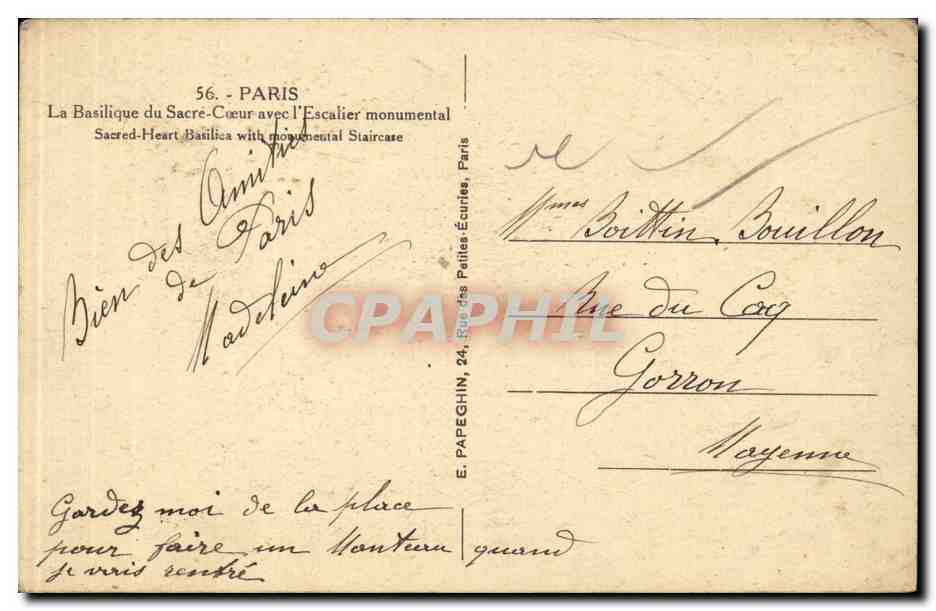 56. - PARIS
La Basilique du Sacré-Cœur avec l'Escalier monumental
Sacred-Heart Basilica with monumental Staircase
Bien des Amitiés
de Paris
Madeleine
Gardez moi de la place
pour faire un Manteau quand
je vais rentré
E. PAPEGHIN, 24, Rue des Petites-Écuries, Paris
Mmes Boittin. Bouillon
Rue du Coq
Gorron
Mayenne
CPAPHIL